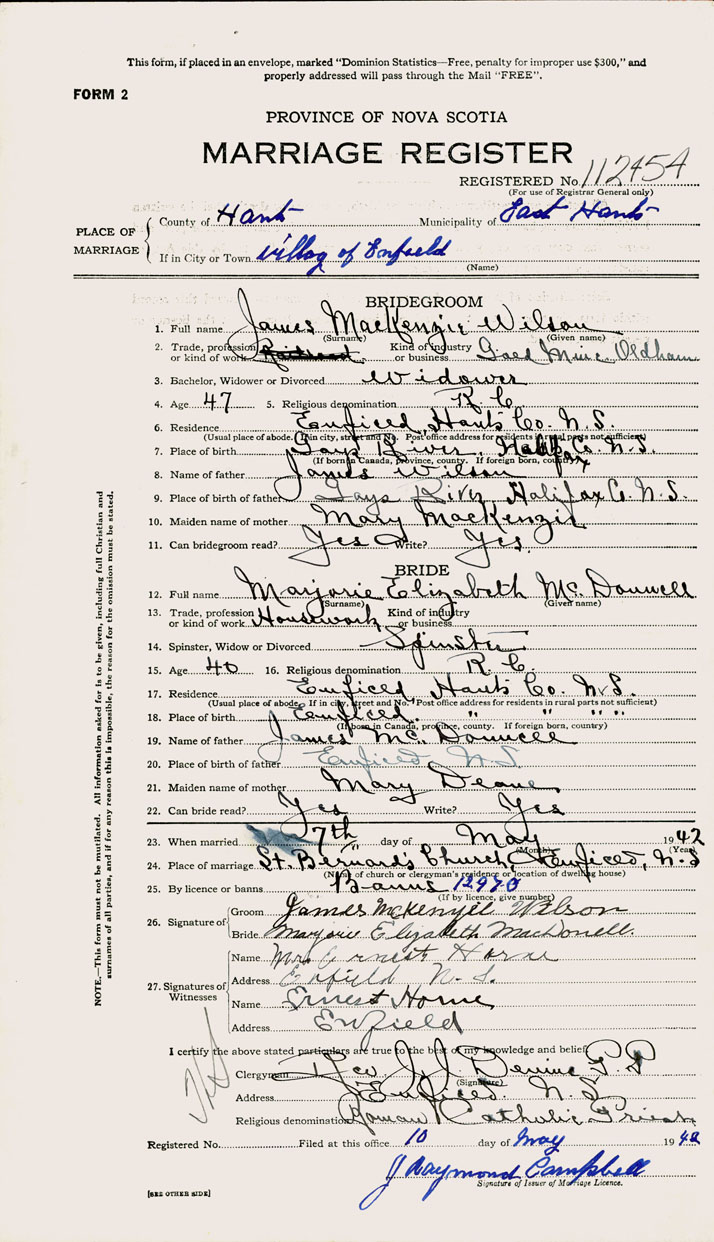 This form, if placed in an envelope, marked "Dominion Statistics—Free, penalty for improper use $300," and
properly addressed will pass through the Mail "FREE".
FORM 2
PROVINCE OF NOVA SCOTIA
MARRIAGE REGISTER
REGISTERED No. 112454
(For use of Registrar General only)
PLACE OF MARRIAGE
County of Hants Municipality of East Hants
If in City or Town Villag of Enfield
(Name)
BRIDEGROOM
1. Full name James MacKenzie Wilson
(Surname) (Given name)
2. Trade, profession or kind of work Railroad Kind of industry or business Goed Mine Oldham
3. Bachelor, Widower or Divorced Widower
4. Age 47 5. Religious denomination R. C.
6. Residence Enfield, Hants Co. N.S.
(Usual place of abode. If in city, street and No. Post office address for residents in rural parts not sufficient)
7. Place of birth Gays River, Halifax Co. N.S.
(If born in Canada, province, county. If foreign born, country)
8. Name of father James Wilson
9. Place of birth of father Gays River, Halifax Co. N.S.
10. Maiden name of mother Mary MacKenzie
11. Can bridegroom read? Yes Write? Yes
BRIDE
12. Full name Marjorie Elizabeth McDonnell
(Surname) (Given name)
13. Trade, profession or kind of work Housework Kind of industry or business
14. Spinster, Widow or Divorced Spinster
15. Age 40 16. Religious denomination R. C.
17. Residence Enfield Hants Co. N.S.
(Usual place of abode. If in city, street and No. Post office address for residents in rural parts not sufficient)
18. Place of birth Enfield. " " " "
(If born in Canada, province, county. If foreign born, country)
19. Name of father James McDonnell
20. Place of birth of father Enfield N.S.
21. Maiden name of mother Mary Deane
22. Can bride read? Yes Write? Yes
23. When married 7th day of May 1942
(Month) (Year)
24. Place of marriage St. Bernard's Church, Enfield, N.S
(Name of church or clergyman's residence or location of dwelling house)
25. By licence or banns Banns 12970
(If by licence, give number)
26. Signature of
Groom James McKenzie Wilson
Bride Marjorie Elizabeth MacDonell.
27. Signatures of Witnesses
Name Mrs Ernest Horne
Address Enfield N.S.
Name Ernest Horne
Address Enfield
I certify the above stated particulars are true to the best of my knowledge and belief.
Clergyman Rev J. J. Devine P.P
(Signature)
Address Enfield. N.S
Religious denomination Roman Catholic Priest
Registered No. Filed at this office 10 day of May 1942
J Raymond Campbell
Signature of Issuer of Marriage Licence.
[SEE OTHER SIDE]
NOTE.—This form must not be mutilated. All information asked for is to be given, including full Christian and
surnames of all parties, and if for any reason this is impossible, the reason for the omission must be stated.